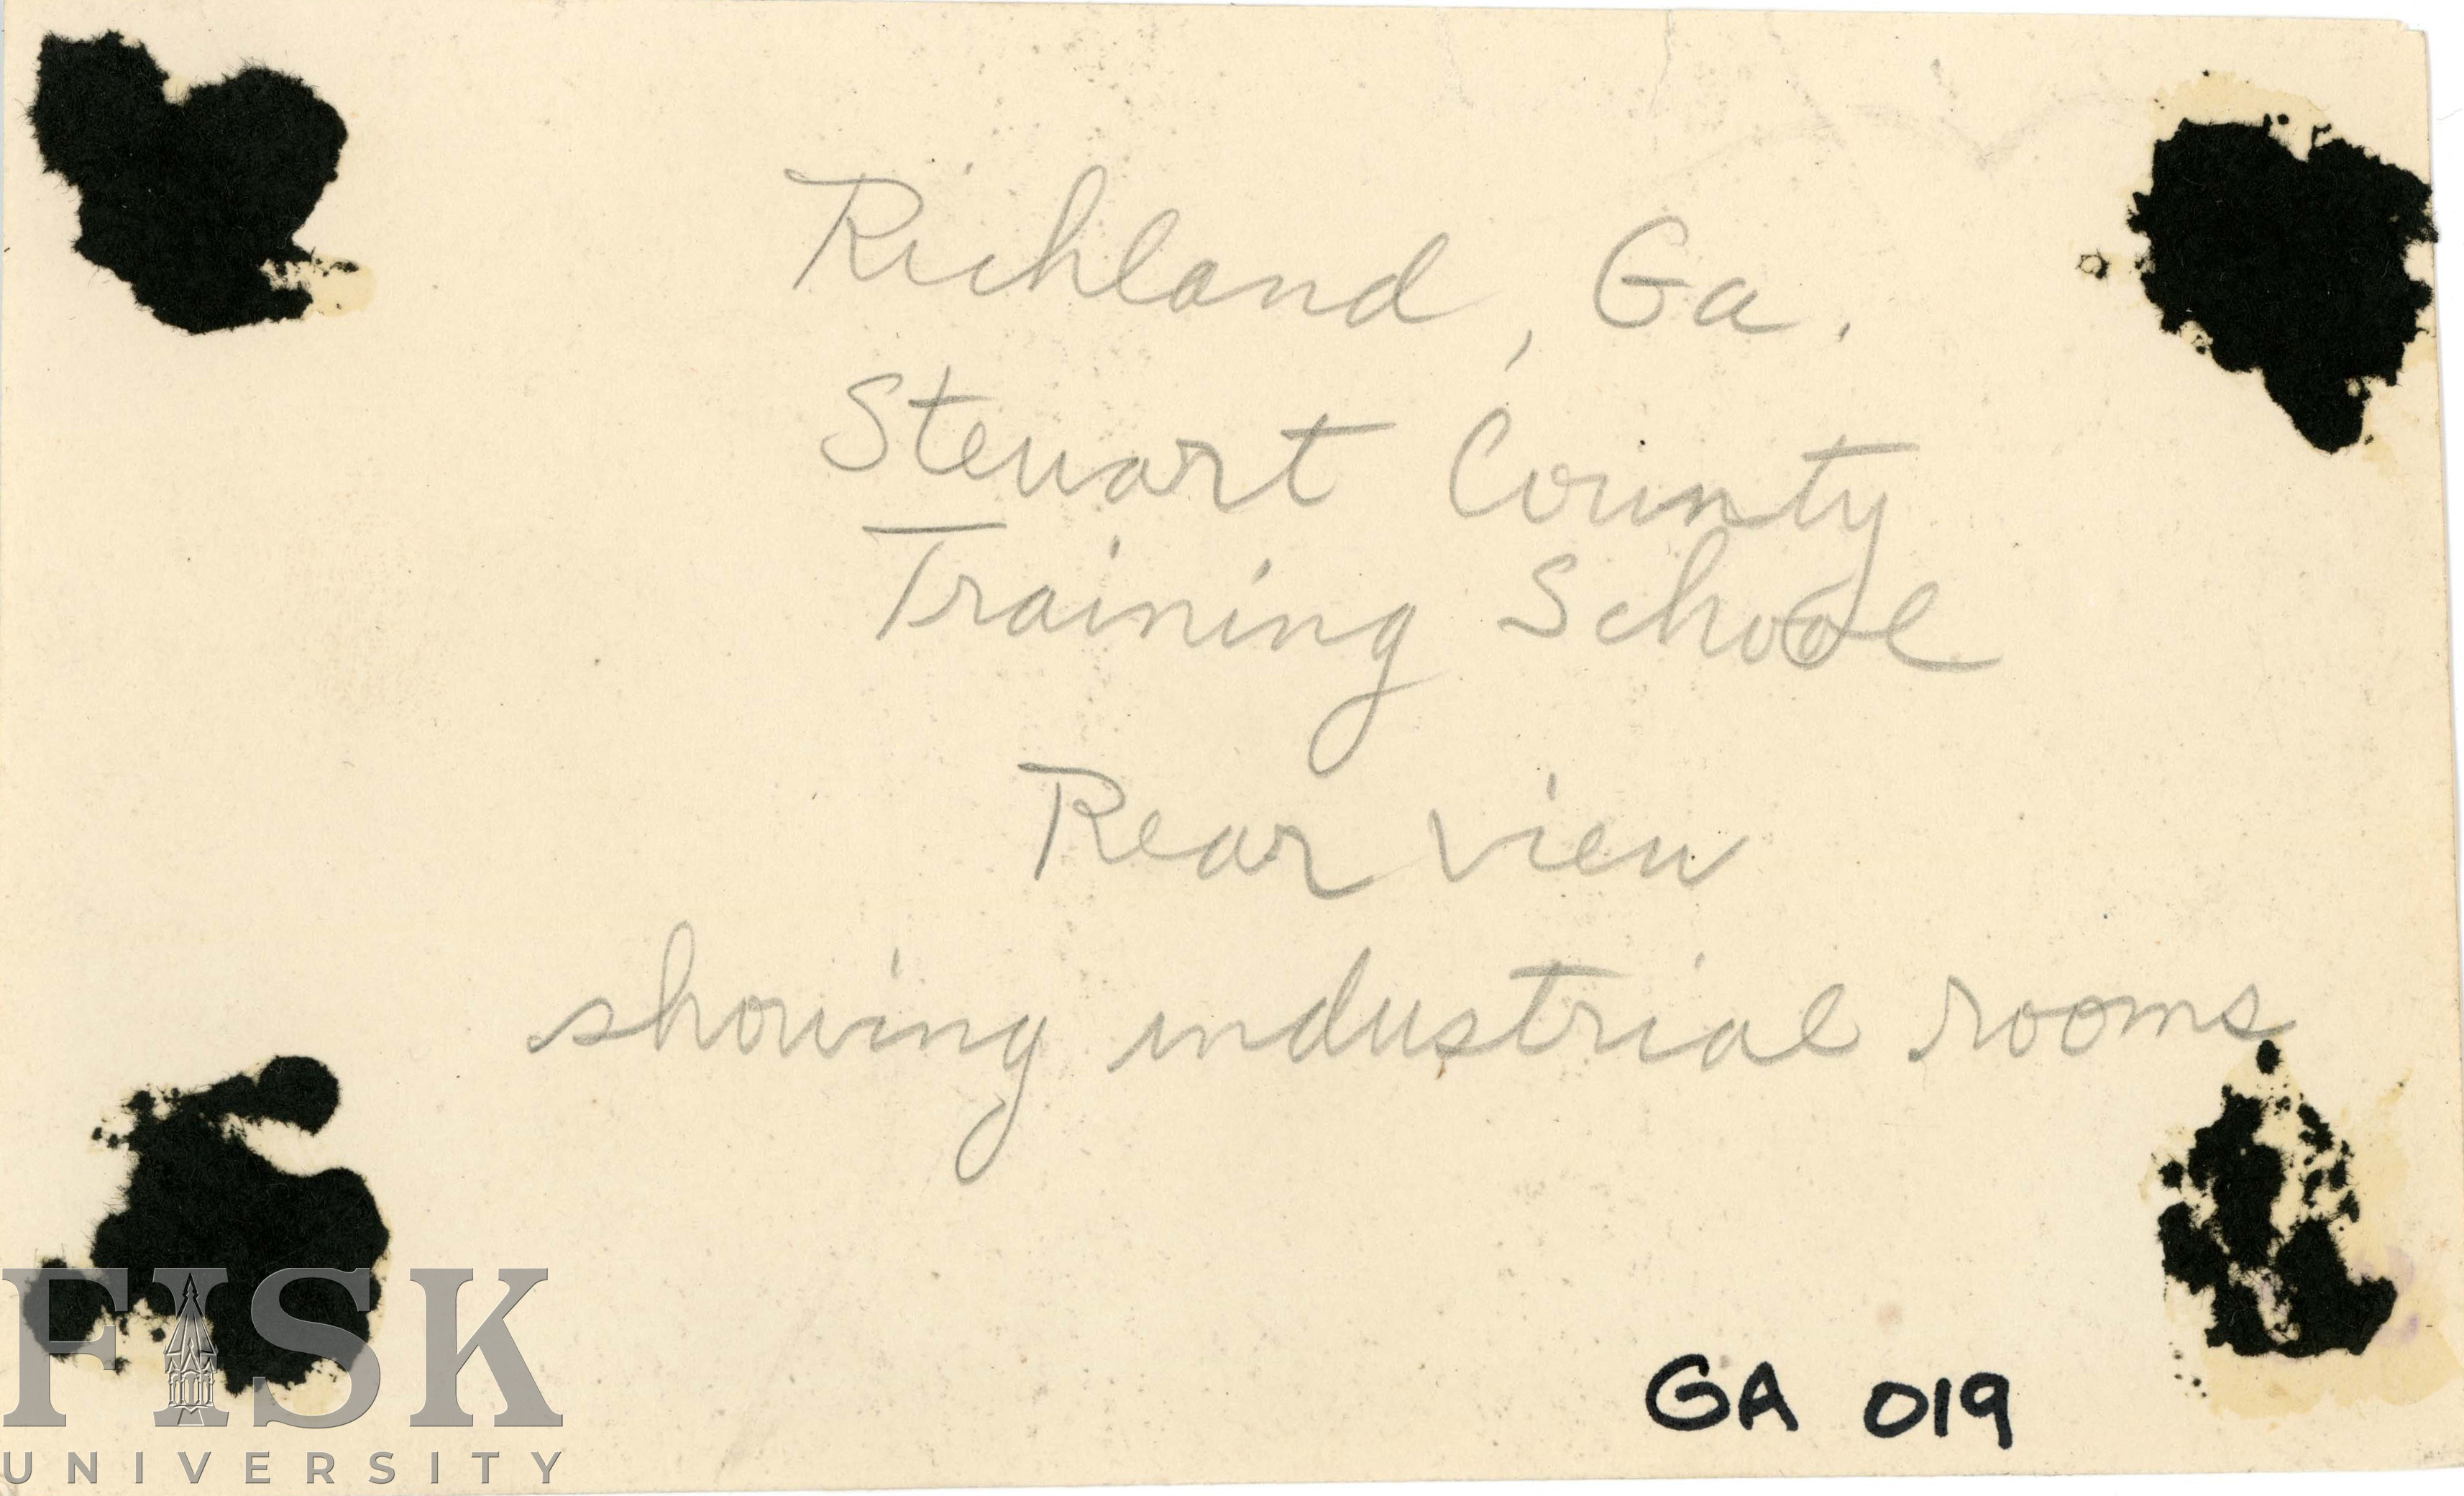 Richland, Ga.
Stewart County
Training School
Rear view
showing industrial rooms
GA 019
FISK
UNIVERSITY